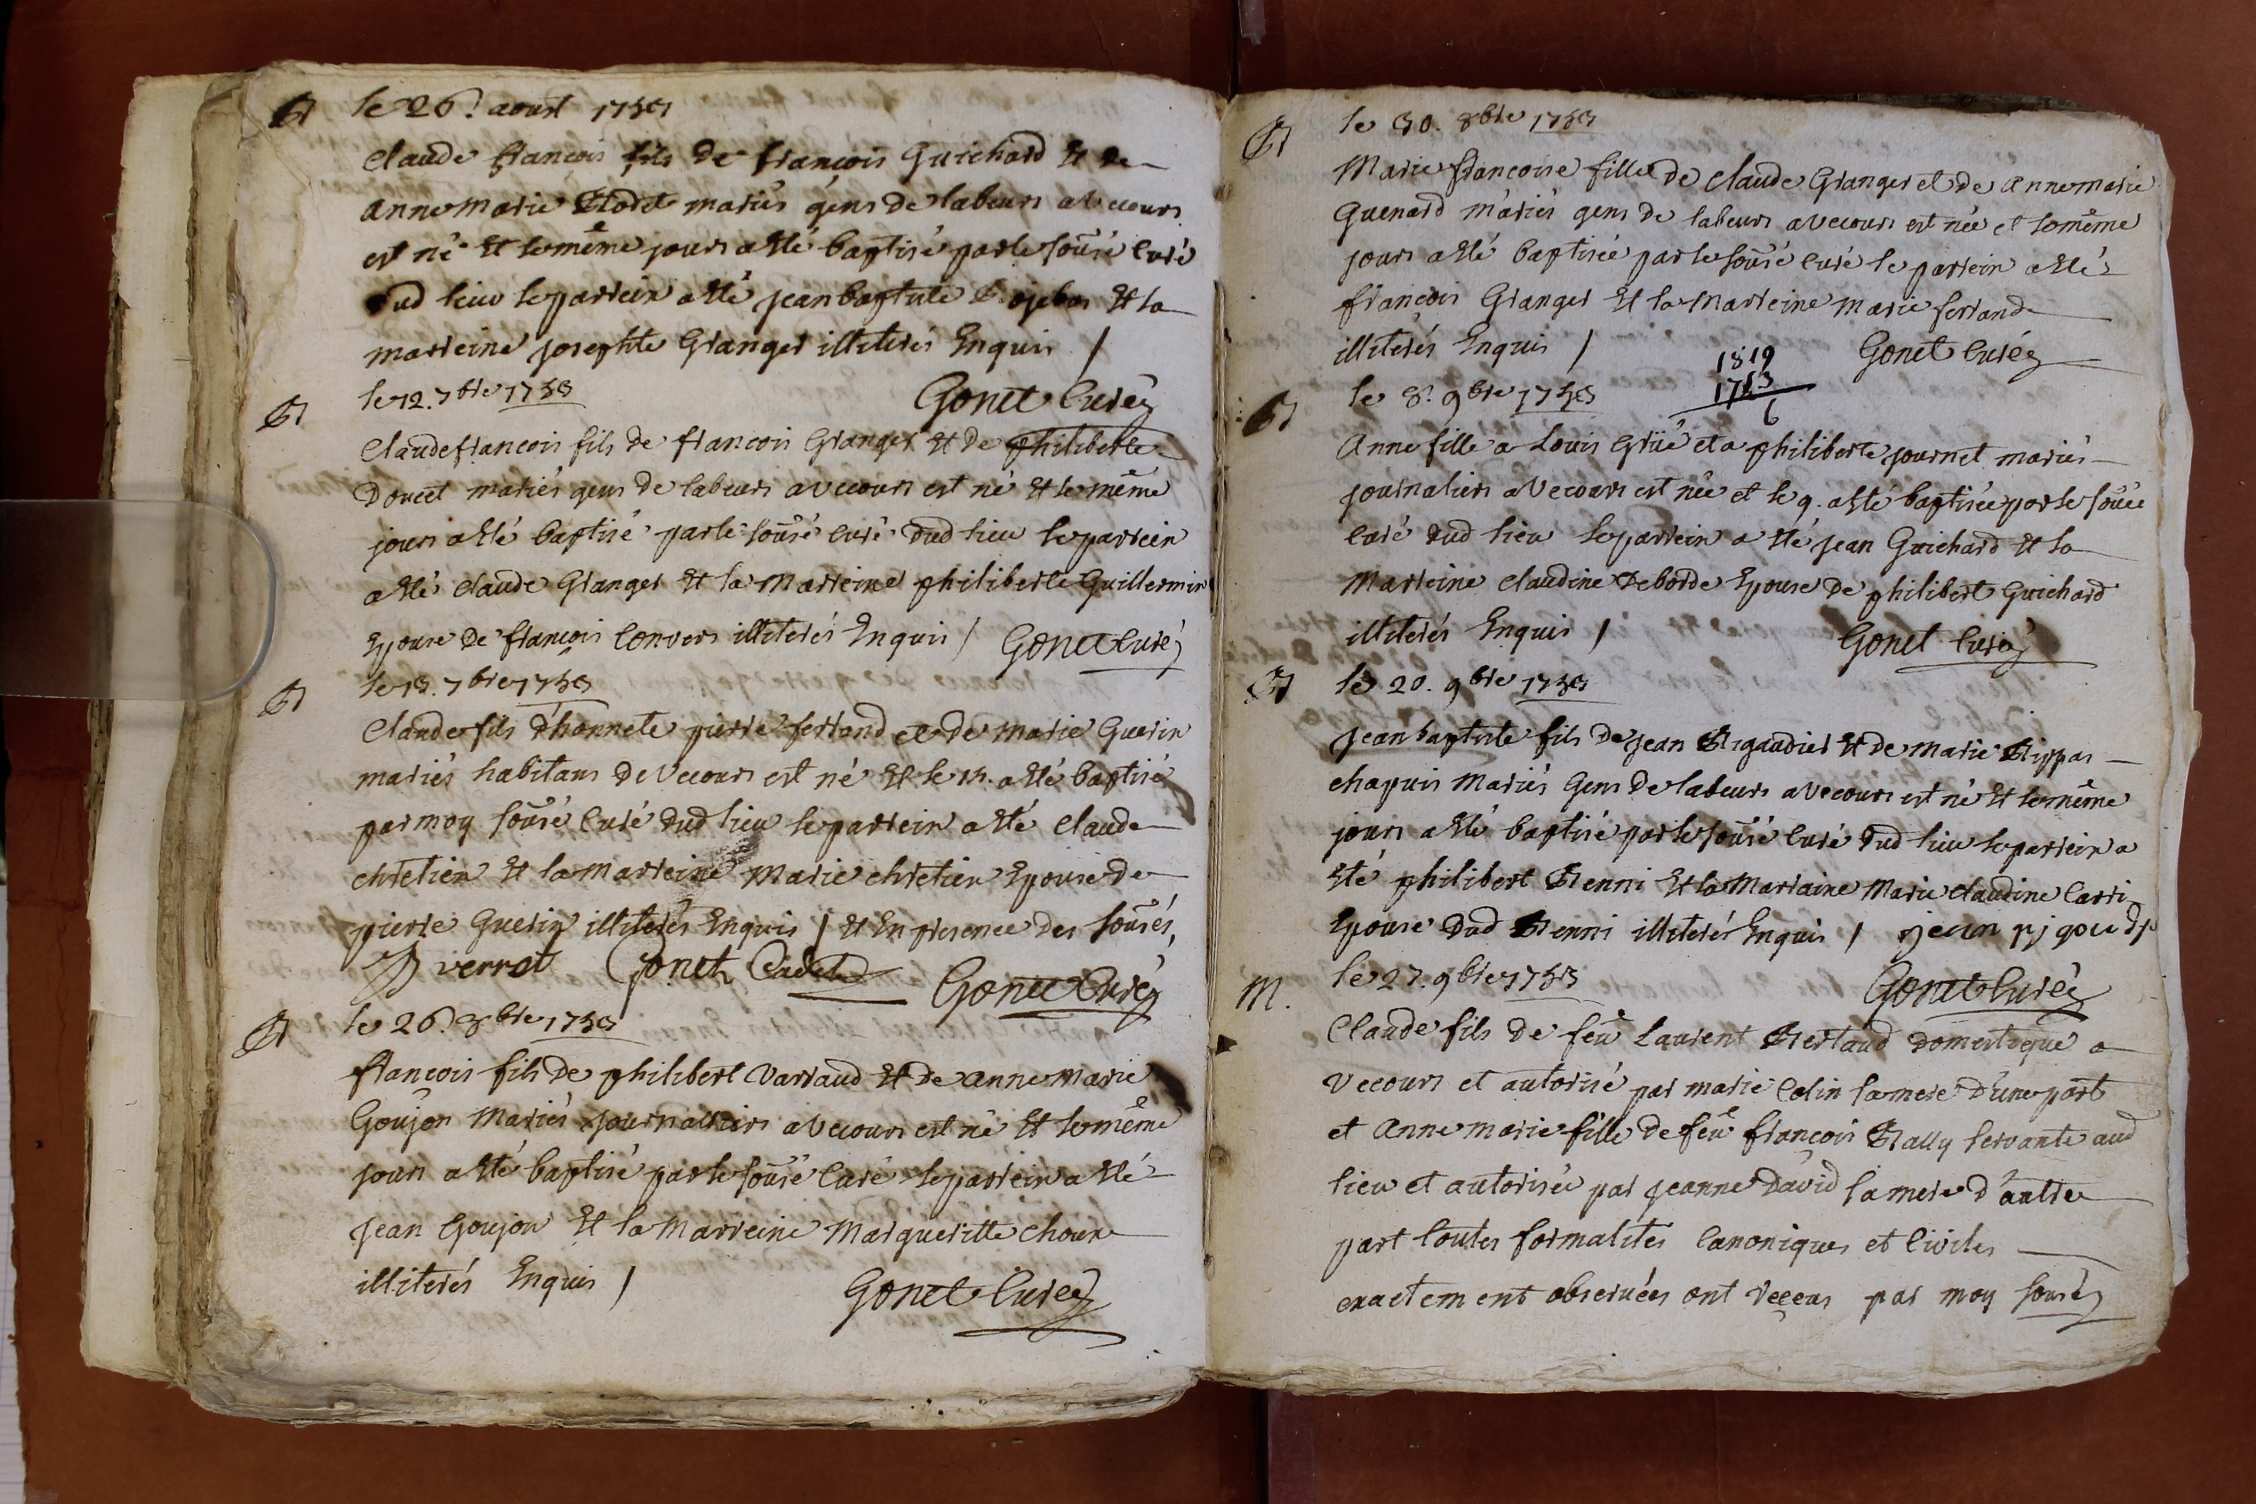 B le 26. aoust 1753
Claude françois fils de françois Guichard Et de
anne marie mariés gens de labeurs a Vecours
est né Et le même jours a Eté baptisé par le sousé Curé
dud lieu le parrein a Eté jean baptiste Et la
marreine josephte Granger illiterés Enquis /
Gonet Curé
B le 12. 7bre 1753
Claude françois fils de françois Granger Et de philiberte
Doucet mariés gens de labeurs a Vecours est né Et le même
jours a Eté baptisé par le sousé Curé dud lieu le parrein
a Eté Claude Granger Et la Marreine philiberte Guillermin
Epouse de françois Convers illiterés Enquis / Gonet Curé
B le 13. 7bre 1753
Claude fils d'honnete pierre ferrand et de marie Guerin
mariés habitans de Vecours est né Et le 14. a Eté baptisé
par moy sousé Curé dud lieu le parrein a Eté Claude
chretien Et la Marreine Marie chretien Epouse de
pierre Guerin illiterés Enquis / Et En presence des sousés,
verrot Gonet Cadet Gonet Curé
B le 26. 8bre 1753
françois fils de philibert Varraud Et de anne marie
Goujon Mariés journaliers a Vecours est né Et le même
jours a Eté baptisé par le sousé Curé le parrein a Eté
jean Goujon Et la Marreine Margueritte Choux
illiterés Enquis / Gonet Curé
B le 30. 8bre 1753
Marie françoise fille de Claude Granger et de anne marie
Guenard mariés gens de labeurs a Vecours est née et le même
jours a Eté baptisée par le sousé Curé le parrein a Eté
françois Granger Et la Marreine Marie ferrand
illiterés Enquis / Gonet Curé
1819
1753
6
B le 8. 9bre 1753
Anne fille a Louis Grüé et a philiberte journet mariés
journaliers a Vecours est née et le 9. a Eté baptisée par le sousé
Curé dud lieu le parrein a Eté jean Guichard Et la
Marreine Claudine Deborde Epouse de philibert Guichard
illiterés Enquis / Gonet Curé
B le 20. 9bre 1753
jean baptiste fils de jean Bigaudier Et de marie
chapuis Mariés Gens de labeurs a Vecours est né Et le même
jours a Eté baptisé par le sousé Curé dud lieu le parrein a
Eté philibert Benni Et la Marraine Marie Claudine Carri
Epouse dud Benni illiterés Enquis / jean
Gonet Curé
M. le 27. 9bre 1753
Claude fils de feu Laurent Bertaud domestique a
Vecours et autorisé par marie Colin sa mere d'une part
et Anne marie fille de feu françois Bally servante aud
lieu et autorisée par jeanne David sa mere d'autre
part toutes formalités Canoniques et Civiles
exactement observées ont reçeus par moy sousé